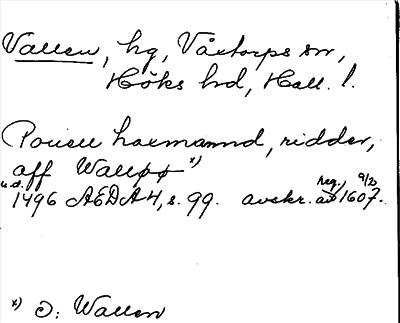 Vallen, hg, Våxtorps sn,
Höks hd, Hall. l.
Pouell haemannd, ridder,
aff Walløø x)
u.d.
1496 ÆDA 4, s. 99. avskr. av reg. 9/3 1607.
x) ɔ: Wallen